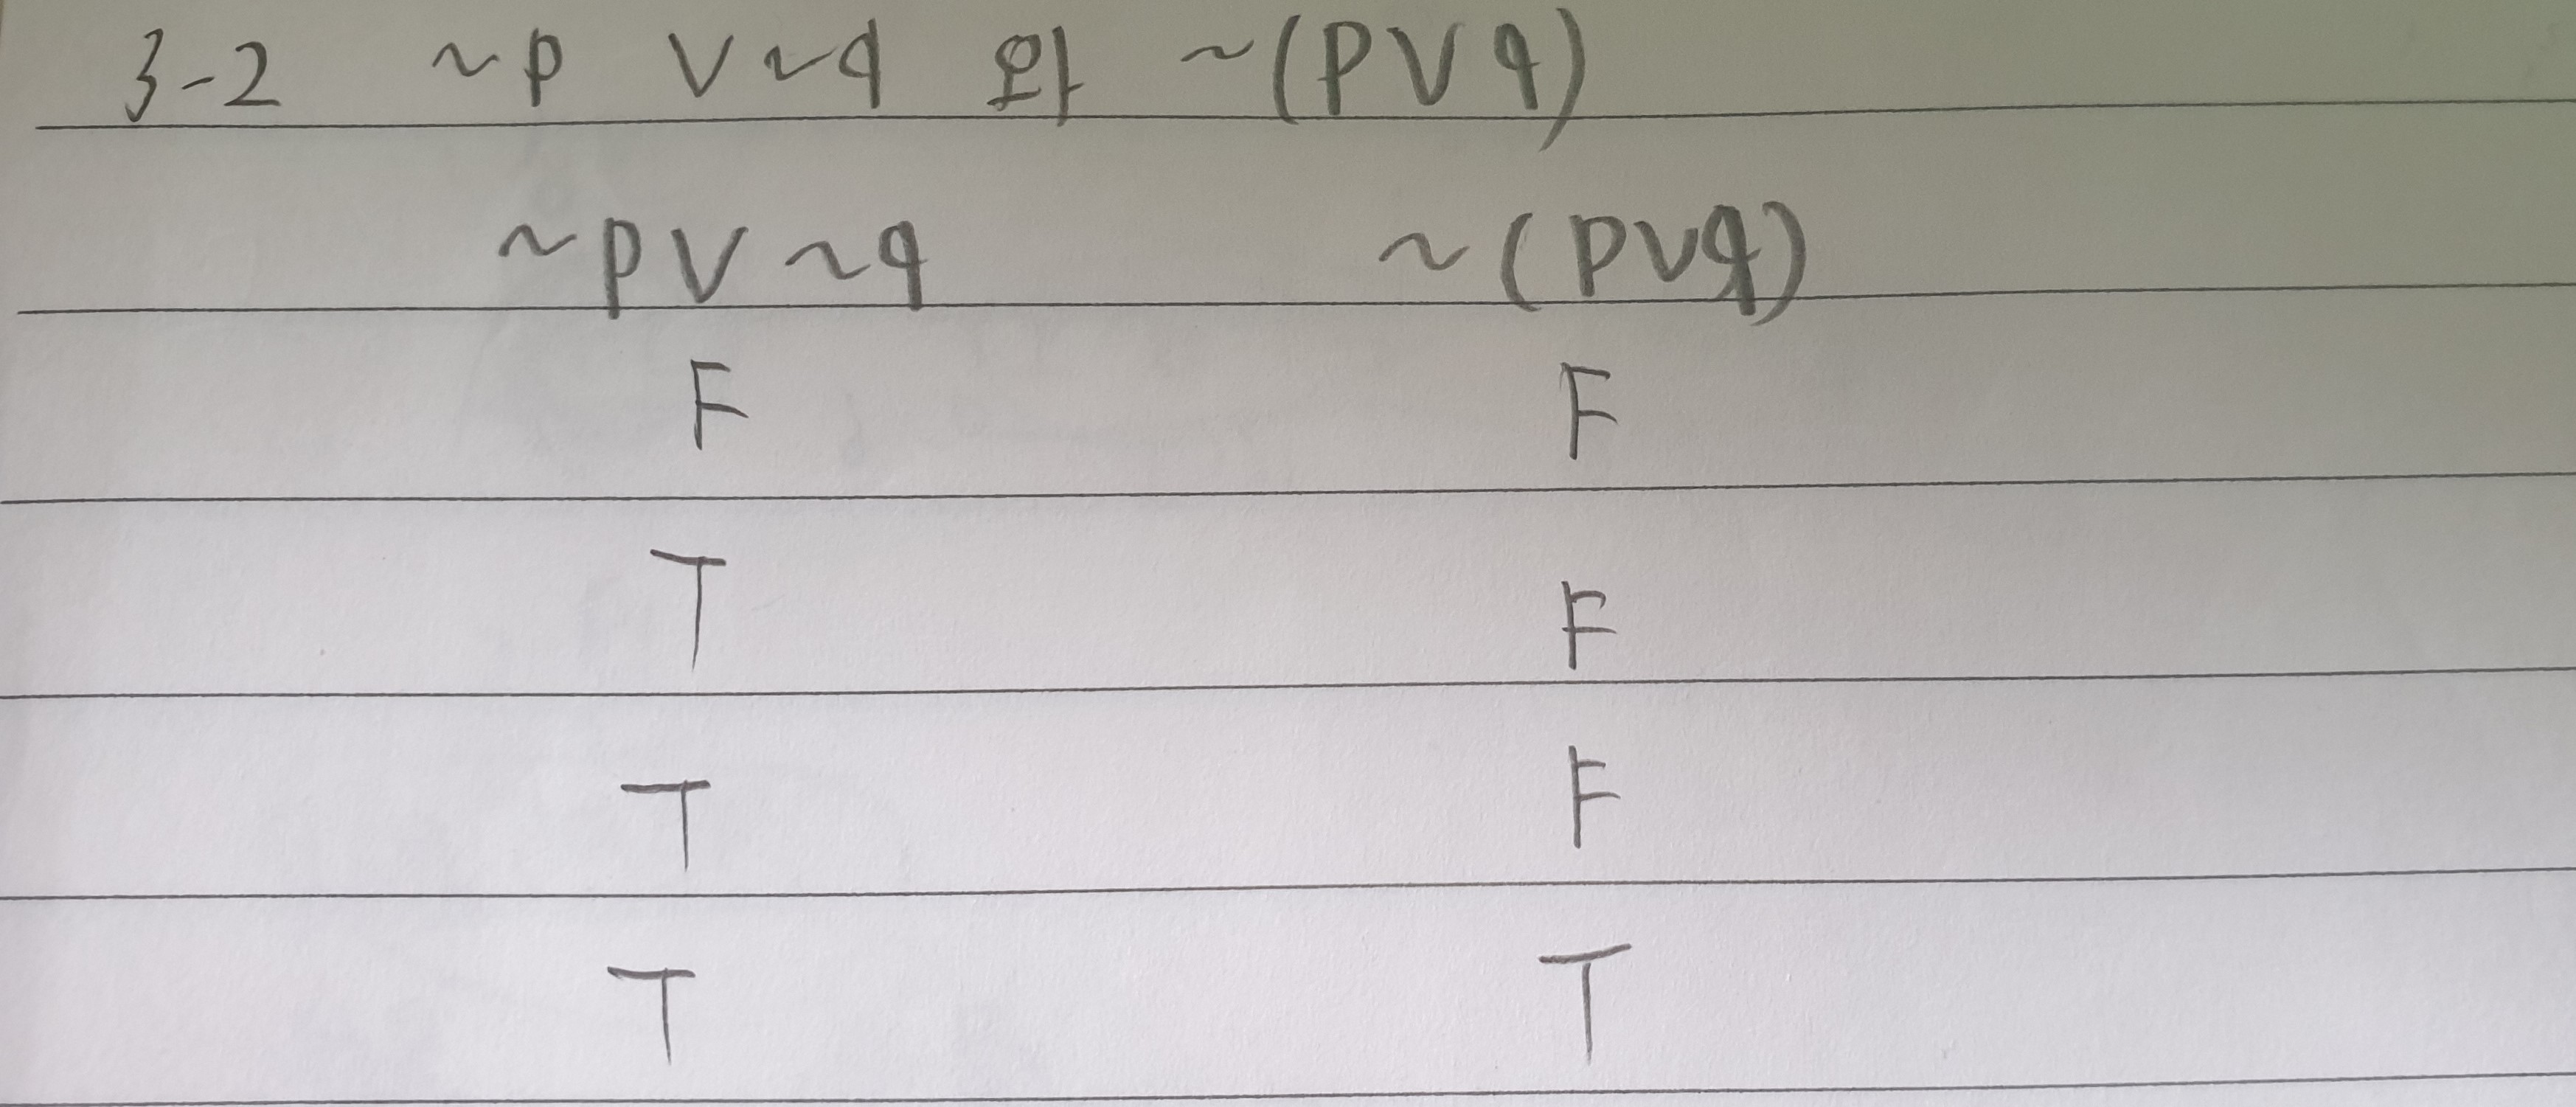 3-2 ~p ∨ ~q 와 ~(p∨q)
~p∨~q ~(p∨q)
F F
T F
T F
T T